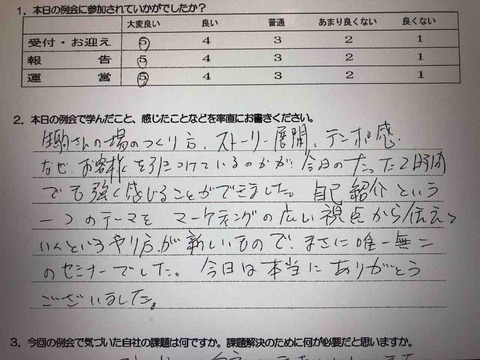 1. 本日の例会に参加されていかがでしたか?
大変良い 良い 普通 あまり良くない 良くない
受付・お迎え 5 4 3 2 1
報告 5 4 3 2 1
運営 5 4 3 2 1
2. 本日の例会で学んだこと、感じたことなどを率直にお書きください。
生駒さんの場のつくり方、ストーリー展開、テンポ感
なぜ、お客様を引きつけているのかが今日のたった2時間
でも強く感じることができました。自己紹介という
一つのテーマをマーケティングの広い視点から伝えて
いくというやり方が新しいもので、まさに唯一無二
のセミナーでした。今日は本当にありがとう
ございました。
3. 今回の例会で気づいた自社の課題は何ですか。課題解決のために何が必要だと思いますか。